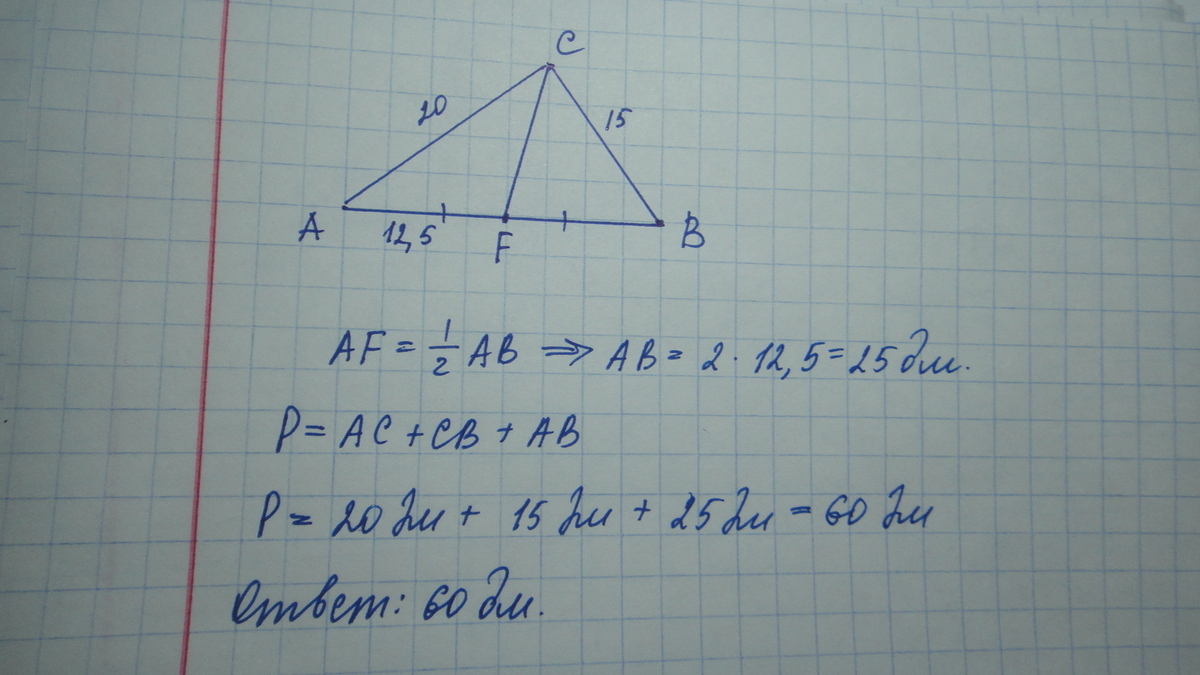 C
20
15
A
12,5
F
B
AF = 1/2 AB ⇒ AB = 2 · 12,5 = 25 дм.
P = AC + CB + AB
P = 20 дм + 15 дм + 25 дм = 60 дм
Ответ: 60 дм.